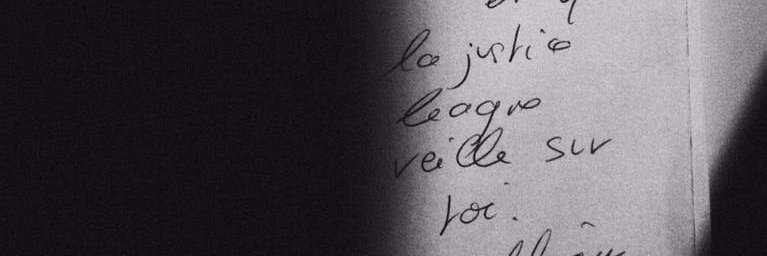 la justice
league
veille sur
toi.